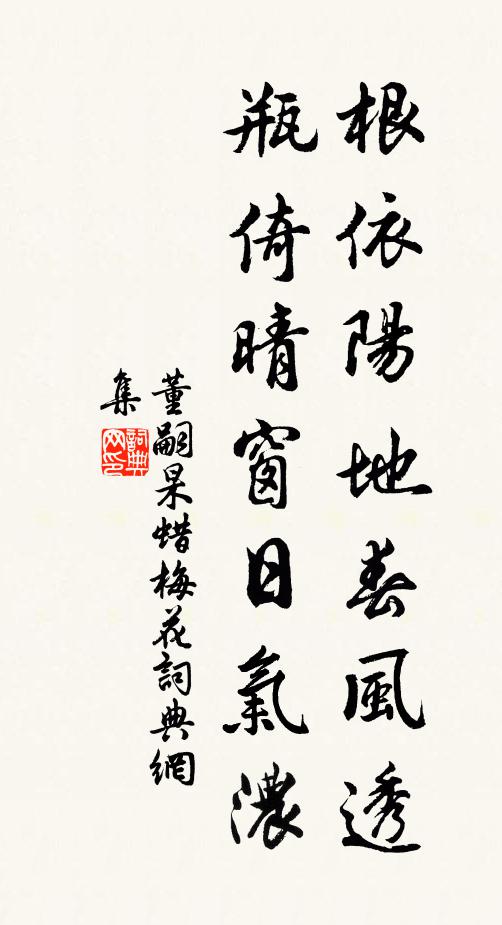 根依陽地春風透
瓶倚晴窗日氣濃
董嗣杲蜡梅花詞典網
集
詞典
网印